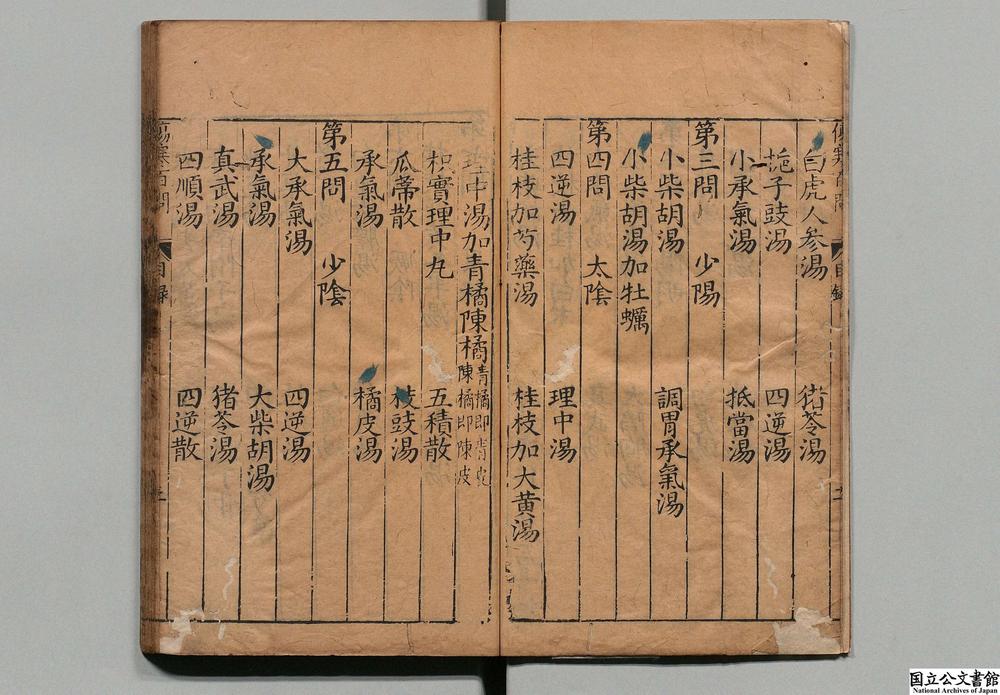 白虎人参湯　猪苓湯
梔子豉湯　四逆湯
小承氣湯　抵當湯
第三問　少陽
小柴胡湯　調胃承氣湯
小柴胡湯加牡蠣
第四問　太陰
四逆湯　理中湯
桂枝加芍藥湯　桂枝加大黄湯
理中湯加青橘陳橘
青橘即青皮
陳橘即陳皮
枳實理中丸　五積散
瓜蒂散　豉湯
承氣湯　橘皮湯
第五問　少陰
大承氣湯　四逆湯
承氣湯　大柴胡湯
真武湯　猪苓湯
四順湯　四逆散
傷寒百問　目録
国立公文書館
National Archives of Japan